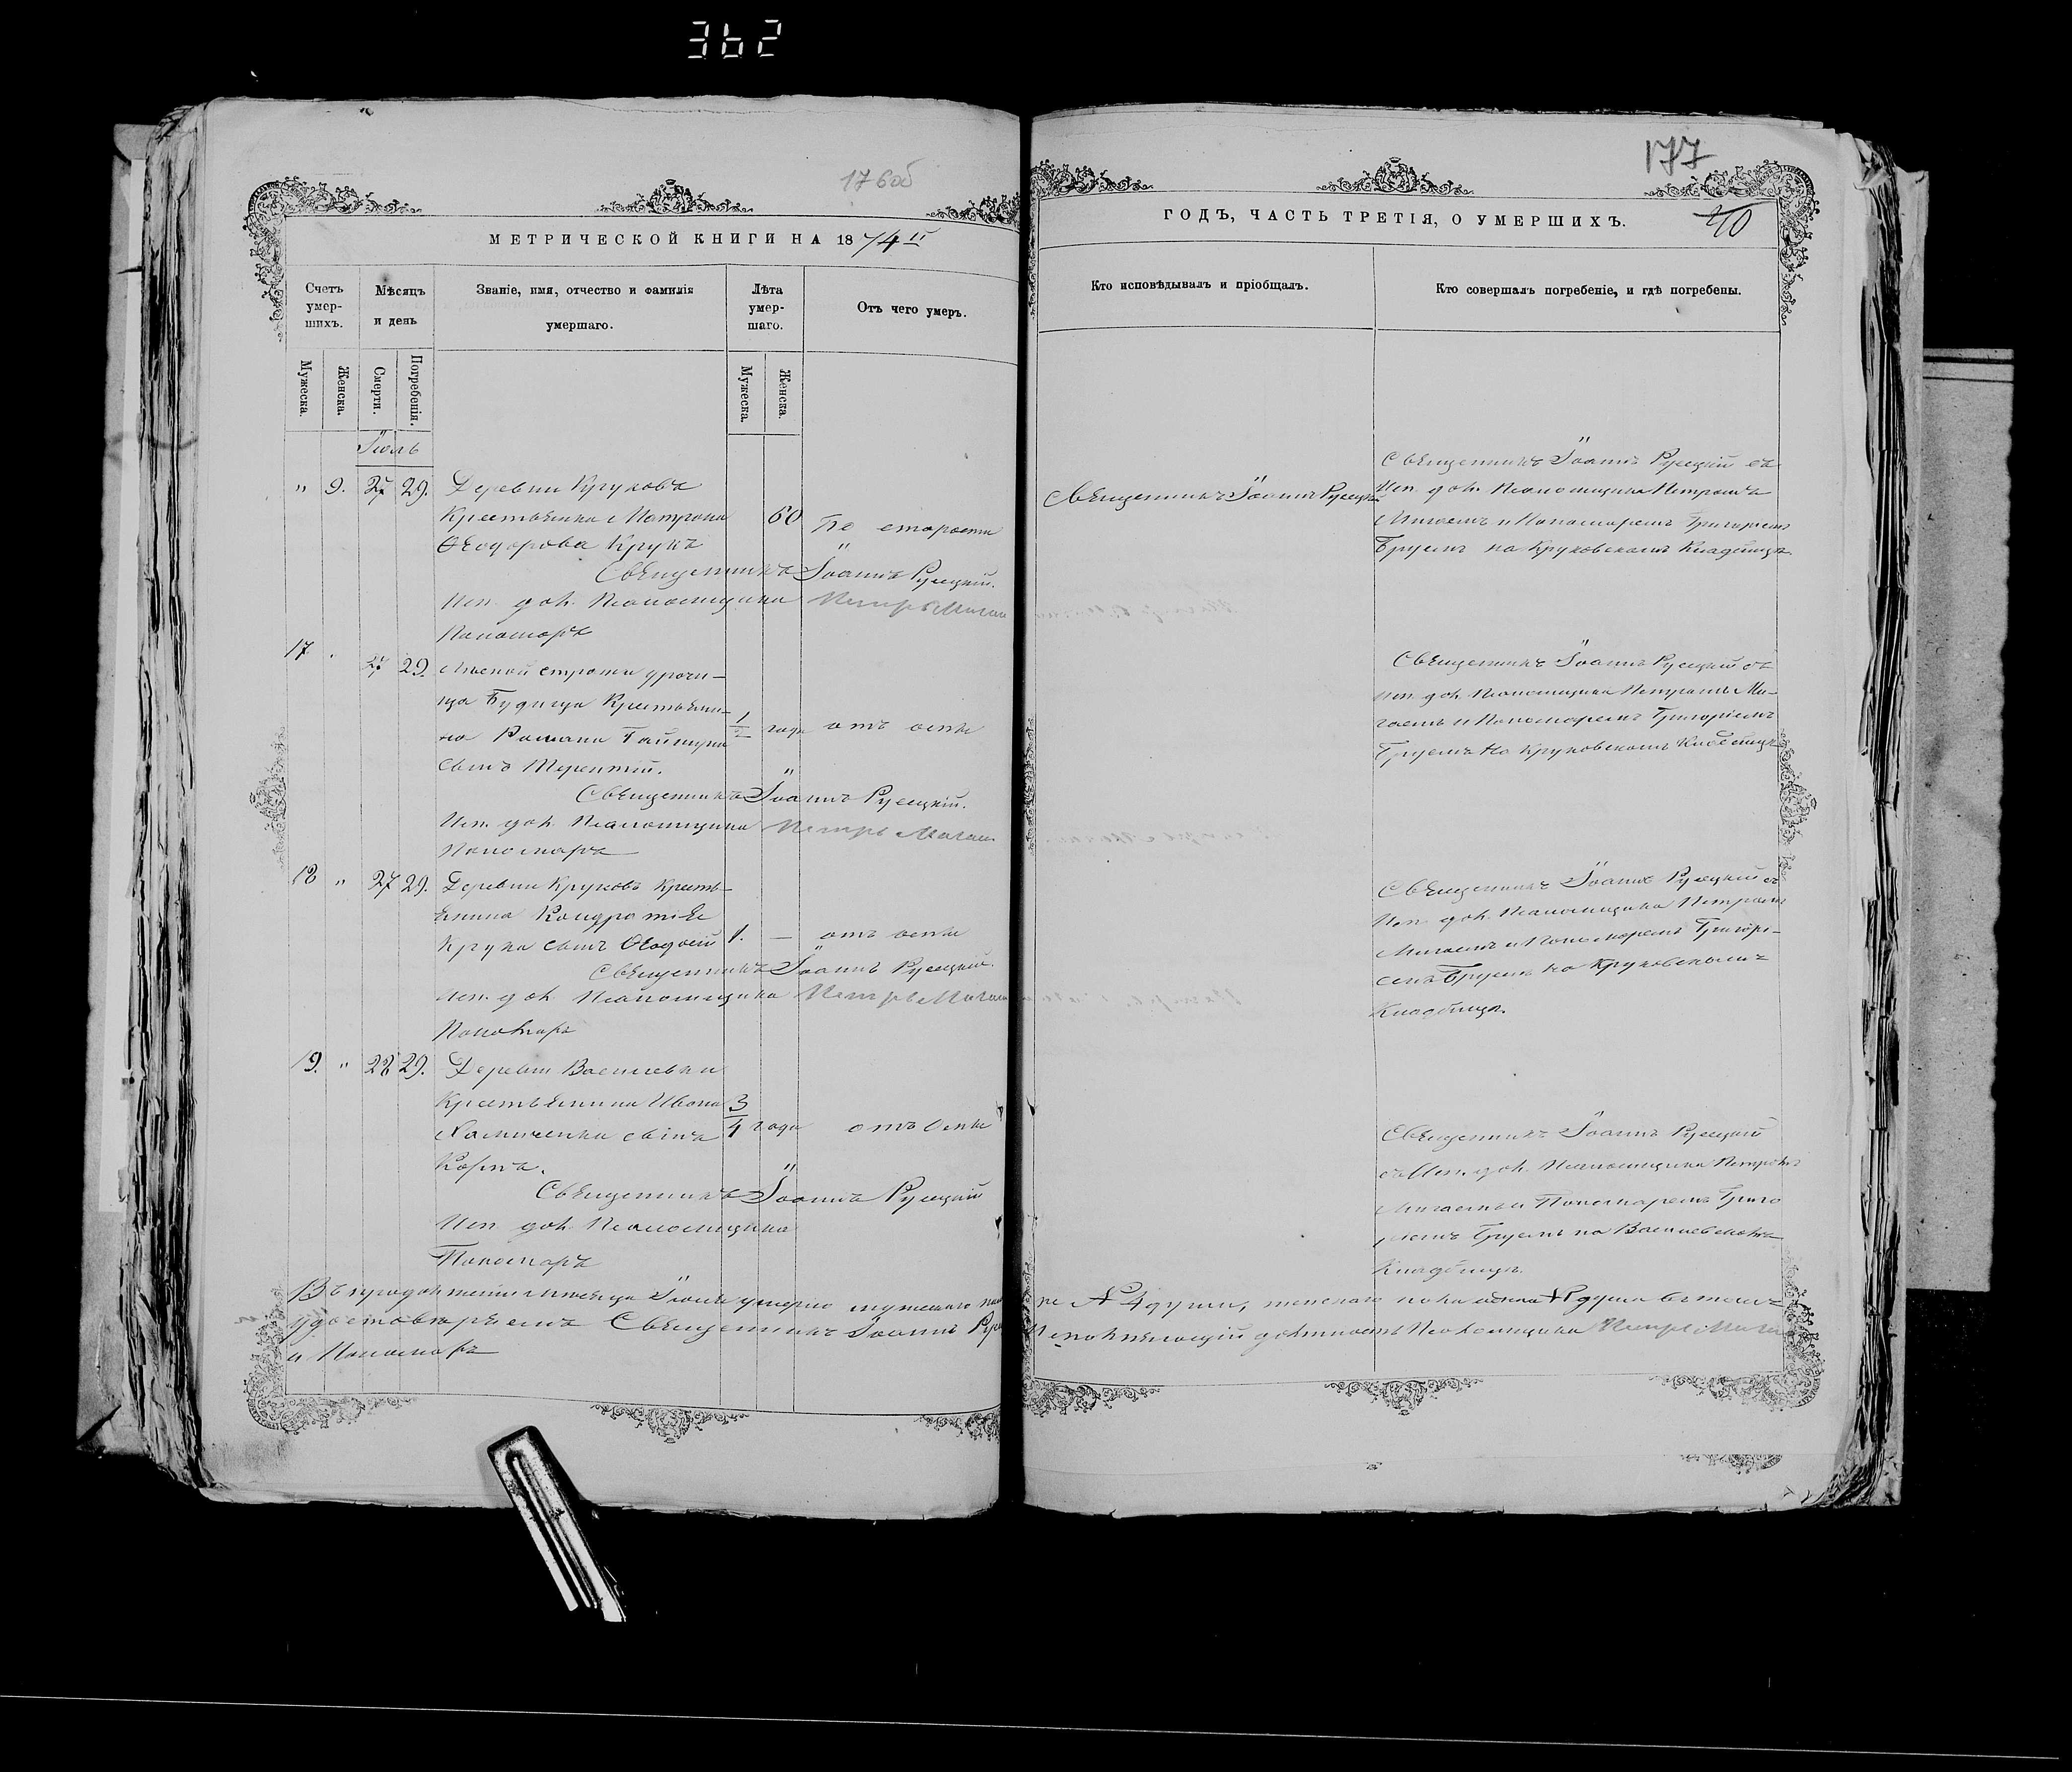 362
176об
МЕТРИЧЕСКОЙ КНИГИ НА 1874й
Счетъ умершихъ.
Мѣсяцъ и день
Званіе, имя, отчество и фамилія умершаго.
Лѣта умершаго.
Отъ чего умеръ.
Мужеска.
Женска.
Смерти.
Погребенія.
Мужеска.
Женска.
Іюль
" 9. 27 29. Деревни Круковъ
Крестьянка Матрона 60 По старости
Ѳеодорова Крукъ
Священникъ Іоаннъ Русецкій.
Исп. дол. Псаломщика Петръ Мигай
Пономарь
17. 27 29. Лѣсной стражи урочи-
ща Будища Крестьяни-
на Романа 1/2 года отъ оспы
сынъ Терентій.
Священникъ Іоаннъ Русецкій.
Исп. дол. Псаломщика Петръ Мигай
Пономарь
18 " 27 29. Деревни Круковъ Крестья-
янина Кондратія
Крука сынъ Ѳеодосій 1. — отъ оспы
Священникъ Іоаннъ Русецкій.
Исп. дол. Псаломщика Петръ Мигай
Пономарь
19. " 28 29. Деревни Василевки
Крестьянина Ивана 3/4 года отъ оспы
сынъ
Карпъ.
Священникъ Іоаннъ Русецкій
Исп. дол. Псаломщика
Пономарь
Въ продолженіи мѣсяца Іюля умерло мужескаго
удостовѣряемъ Священникъ Іоаннъ
и Пономарь
177
ГОДЪ, ЧАСТЬ ТРЕТІЯ, О УМЕРШИХЪ.
40
Кто исповѣдывалъ и пріобщалъ.
Кто совершалъ погребеніе, и гдѣ погребены.
Священникъ Іоаннъ Русецкій
Священникъ Іоаннъ Русецкій съ
Исп. дол. Псаломщика Петромъ
Мигаемъ и Пономаремъ Григоріемъ
на Круковскомъ Кладбищѣ
Священникъ Іоаннъ Русецкій съ
исп. дол. Псаломщика Петромъ Ми-
гаемъ и Пономаремъ Григоріемъ
на Круковскомъ Кладбищѣ
Священникъ Іоаннъ Русецкій съ
Исп. дол. Псаломщика Петромъ
Мигаемъ и Пономаремъ Григорі-
емъ на Круковскомъ
Кладбищѣ.
Священникъ Іоаннъ Русецкій
съ Исп. дол. Псаломщика Петромъ
Мигаемъ и Пономаремъ Григо
ріемъ на Василевскомъ
Кладбищѣ.
4 души, женскаго пола душа въ томъ
Исполняющій должность Псаломщика Петръ Мигай